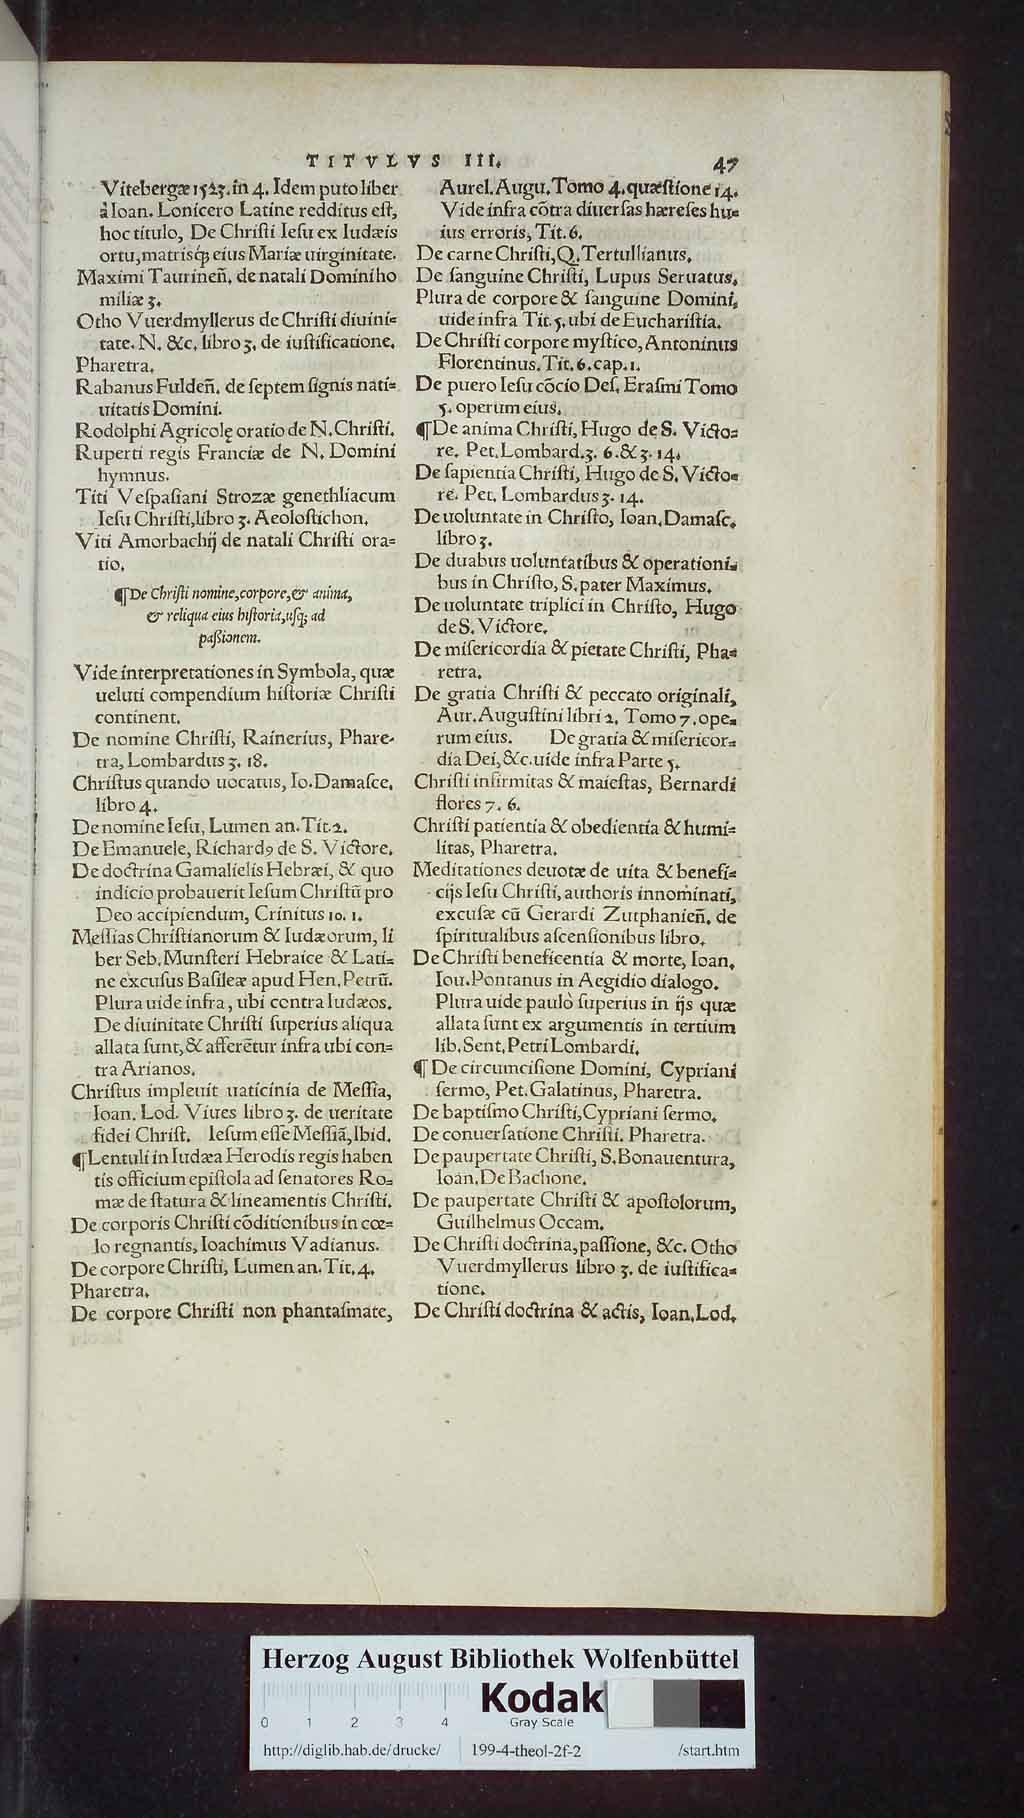 TITVLVS III. 47
Vitebergæ 1523. in 4. Idem puto liber
à Ioan. Lonicero Latine redditus eſt,
hoc titulo, De Chriſti Ieſu ex Iudæis
ortu, matrisq́; eius Mariæ uirginitate.
Maximi Taurineñ. de natali Domini ho
miliæ 3.
Otho Vuerdmyllerus de Chriſti diuini=
tate. N. &c. libro 3. de iuſtificatione.
Pharetra.
Rabanus Fuldeñ. de ſeptem ſignis nati=
uitatis Domini.
Rodolphi Agricolę oratio de N. Chriſti.
Ruperti regis Franciæ de N. Domini
hymnus.
Titi Veſpaſiani Strozæ genethliacum
Ieſu Chriſti, libro 3. Aeoloſtichon.
Viti Amorbachij de natali Chriſti ora=
tio.
¶ De Chriſti nomine, corpore, & anima,
& reliqua eius hiſtoria, uſq; ad
paßionem.
Vide interpretationes in Symbola, quæ
ueluti compendium hiſtoriæ Chriſti
continent.
De nomine Chriſti, Rainerius, Phare=
tra, Lombardus 3. 18.
Chriſtus quando uocatus, Io. Damaſce.
libro 4.
De nomine Ieſu, Lumen an. Tit. 2.
De Emanuele, Richardꝰ de S. Victore.
De doctrina Gamalielis Hebræi, & quo
indicio probauerit Ieſum Chriſtū pro
Deo accipiendum, Crinitus 10. 1.
Meſſias Chriſtianorum & Iudæorum, li
ber Seb. Munſteri Hebraice & Lati=
ne excuſus Baſileæ apud Hen. Petrū.
Plura uide infra, ubi contra Iudæos.
De diuinitate Chriſti ſuperius aliqua
allata ſunt, & afferētur infra ubi con=
tra Arianos.
Chriſtus impleuit uaticinia de Meſſia,
Ioan. Lod. Viues libro 3. de ueritate
fidei Chriſt. Ieſum eſſe Meſſiā, Ibid.
¶ Lentuli in Iudæa Herodis regis haben
tis officium epiſtola ad ſenatores Ro=
mæ de ſtatura & lineamentis Chriſti.
De corporis Chriſti cōditionibus in cœ=
lo regnantis, Ioachimus Vadianus.
De corpore Chriſti, Lumen an. Tit. 4.
Pharetra.
De corpore Chriſti non phantaſmate,
Aurel. Augu. Tomo 4. quæſtione 14.
Vide infra cōtra diuerſas hæreſes hu=
ius erroris, Tit. 6.
De carne Chriſti, Q. Tertullianus.
De ſanguine Chriſti, Lupus Seruatus.
Plura de corpore & ſanguine Domini,
uide infra Tit. 5. ubi de Euchariſtia.
De Chriſti corpore myſtico, Antoninus
Florentinus. Tit. 6. cap. 1.
De puero Ieſu cōcio Deſ. Eraſmi Tomo
5. operum eius.
¶ De anima Chriſti, Hugo de S. Victo=
re. Pet. Lombard. 3. 6. & 3. 14.
De ſapientia Chriſti, Hugo de S. Victo=
re. Pet. Lombardus 3. 14.
De uoluntate in Chriſto, Ioan. Damaſc.
libro 3.
De duabus uoluntatibus & operationi=
bus in Chriſto, S. pater Maximus.
De uoluntate triplici in Chriſto, Hugo
de S. Victore.
De miſericordia & pietate Chriſti, Pha=
retra.
De gratia Chriſti & peccato originali,
Aur. Auguſtini libri 2. Tomo 7. ope=
rum eius. De gratia & miſericor=
dia Dei, &c. uide infra Parte 5.
Chriſti infirmitas & maieſtas, Bernardi
flores 7. 6.
Chriſti patientia & obedientia & humi=
litas, Pharetra.
Meditationes deuotæ de uita & benefi=
cijs Ieſu Chriſti, authoris innominati,
excuſæ cū Gerardi Zutphanieñ. de
ſpiritualibus aſcenſionibus libro.
De Chriſti beneficentia & morte, Ioan.
Iou. Pontanus in Aegidio dialogo.
Plura uide paulò ſuperius in ijs quæ
allata ſunt ex argumentis in tertium
lib. Sent. Petri Lombardi.
¶ De circumciſione Domini, Cypriani
ſermo, Pet. Galatinus, Pharetra.
De baptiſmo Chriſti, Cypriani ſermo.
De conuerſatione Chriſti. Pharetra.
De paupertate Chriſti, S. Bonauentura,
Ioan. De Bachone.
De paupertate Chriſti & apoſtolorum,
Guilhelmus Occam.
De Chriſti doctrina, paſſione, &c. Otho
Vuerdmyllerus libro 3. de iuſtifica=
tione.
De Chriſti doctrina & actis, Ioan. Lod.
Herzog August Bibliothek Wolfenbüttel
Kodak
0 1 2 3 4 Gray Scale
http://diglib.hab.de/drucke/ 199-4-theol-2f-2 /start.htm